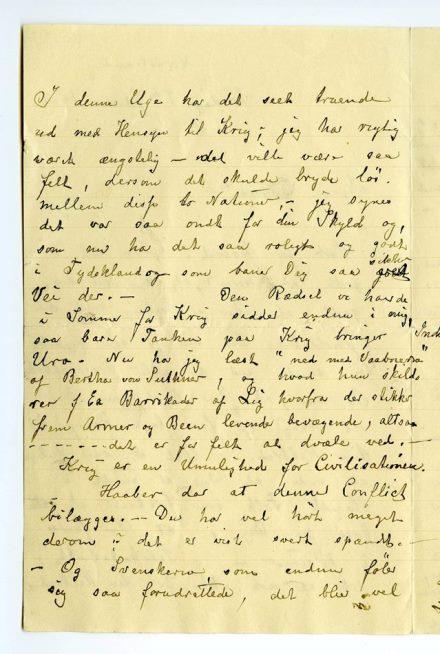 I denne Uge har det seet truende
ud med Hensyn til Krig; jeg har rigtig
været ængstelig — det vilde være saa
felt, dersom det skulde bryde løs.
mellem disse to Nationer, — jeg synes
det var saa ondt for din Skyld og,
som nu har det saa roligt og godt
i Tydskland og som baner Dig saa sikker
Vei der. — Den Rædsel vi havde
i Sommer for Krig sidder endnu i mig,
saa bare Tanken paa Krig bringer Indre
Uro. Nu har jeg læst "ned med Vaabnene"
af Bertha von Suttner, og hvad hun skild-
rer f Ex Barrikader af Lig hvorfra der stikker
frem Armer og Been levende bevægende, altsaa
------- det er for felt at dvæle ved. —
Krig er en Umulighed for Civilisationen.
Haaber dog at denne Conflict
bilægges. — Du har vel hørt meget
derom; det er vist svert spændt. —
— Og Svenskerne, som endnu føler
sig saa forudrettede, det blir vel